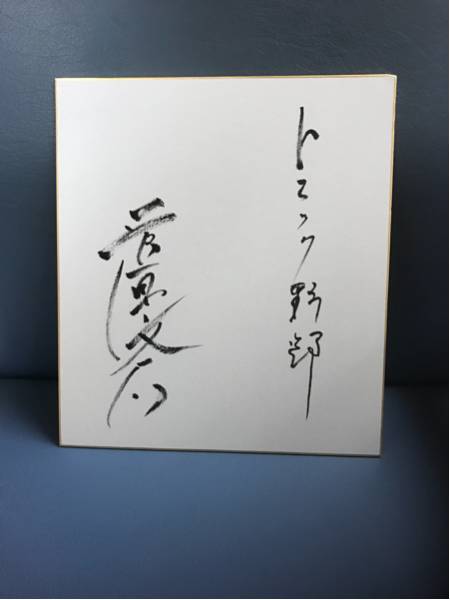 トラック野郎
菅原文太